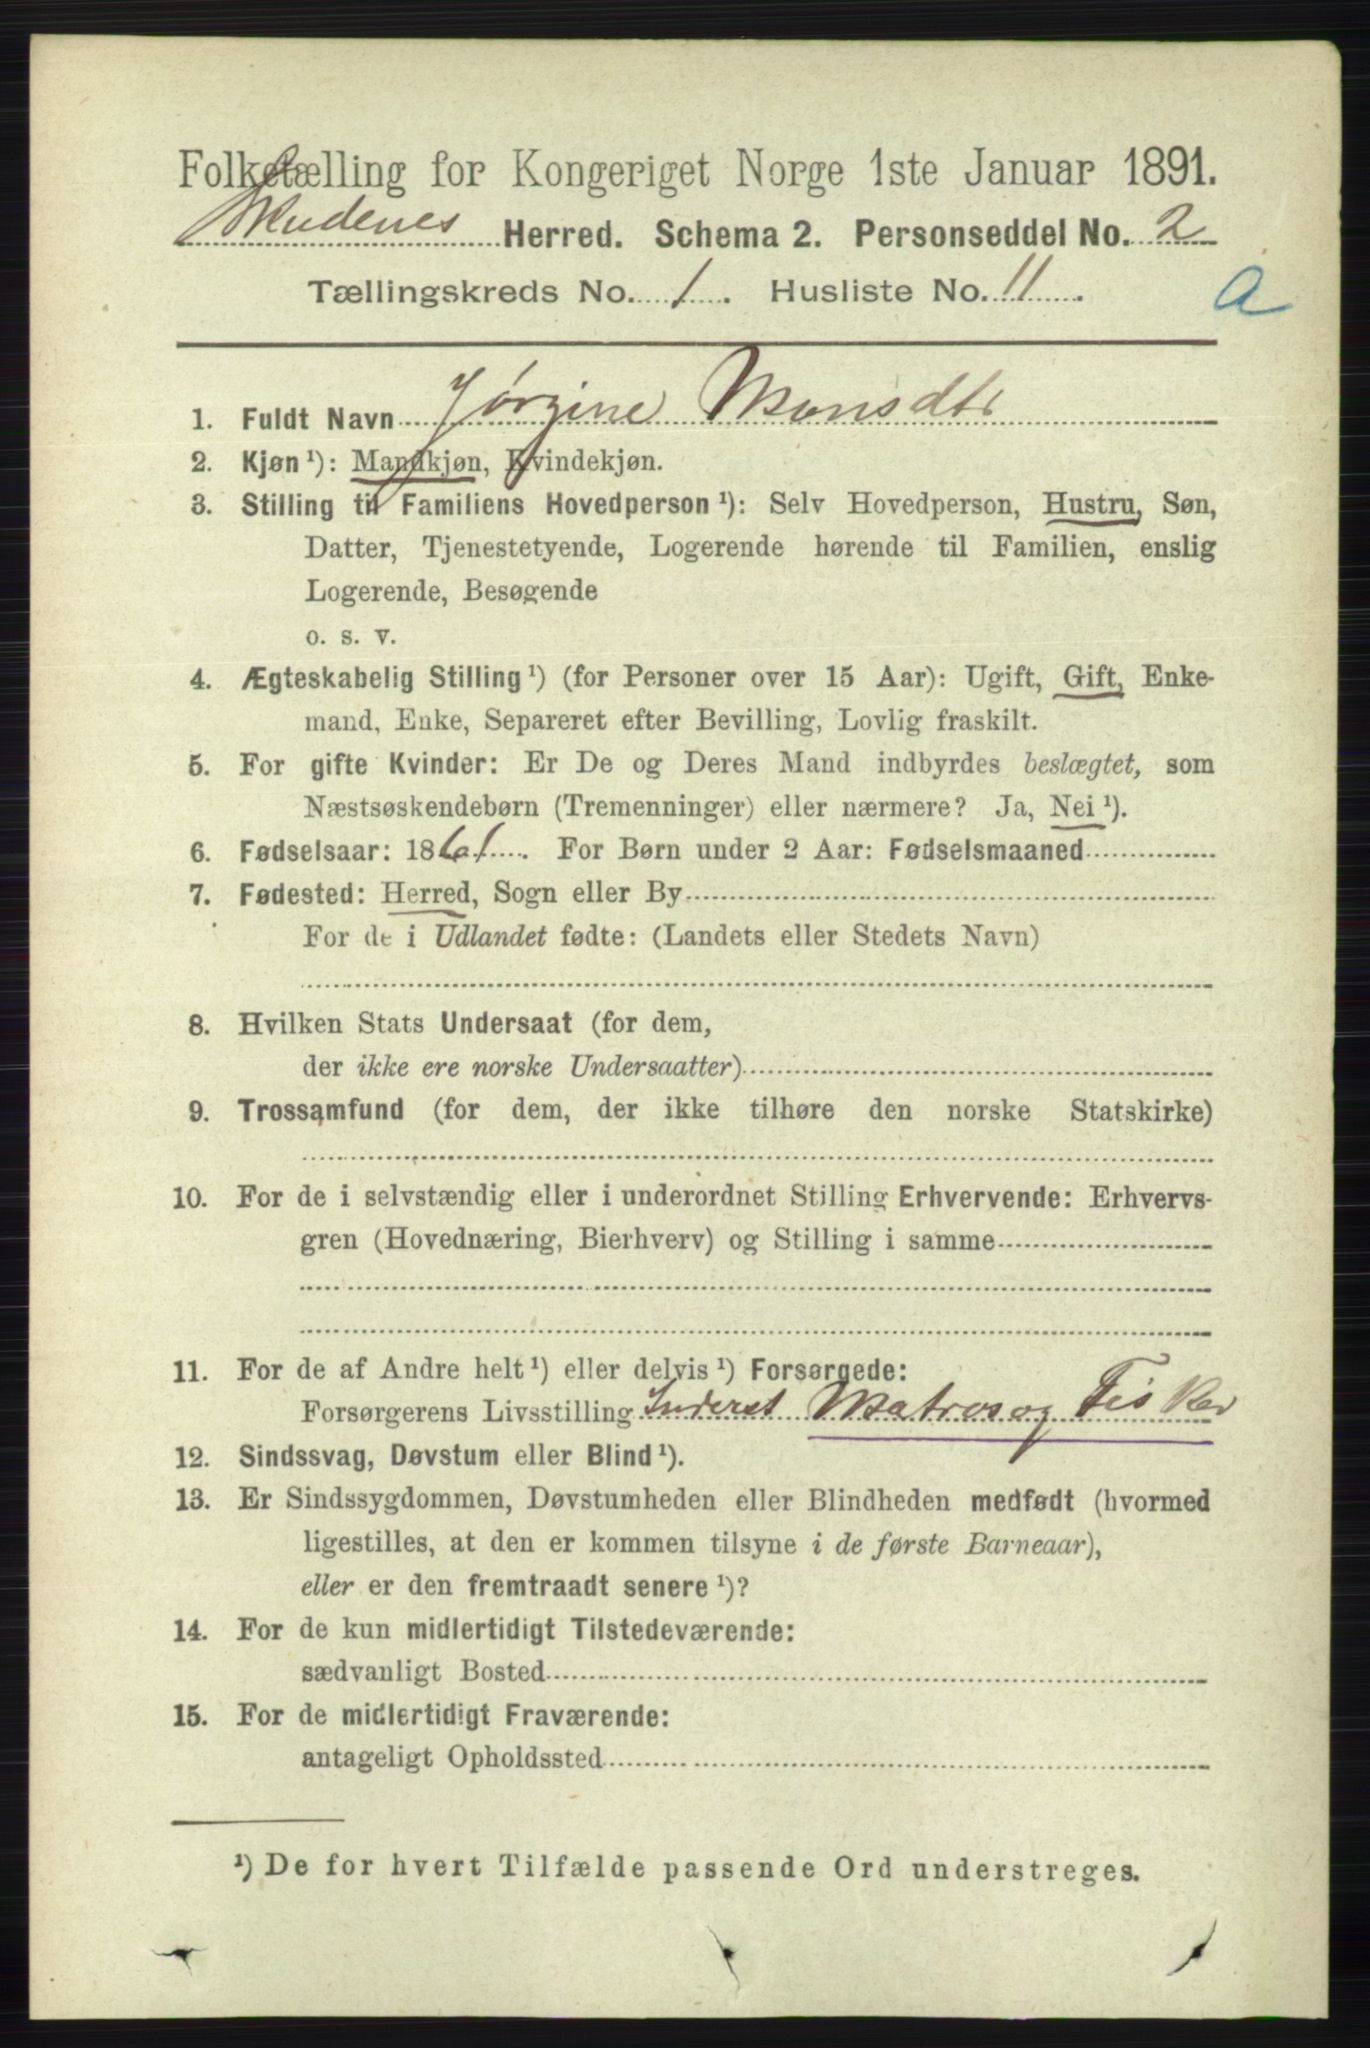 Folketælling for Kongeriget Norge 1ste Januar 1891.
Skudenes Herred. Schema 2. Personseddel No. 2
Tællingskreds No. 1. Husliste No. 11.
a
1. Fuldt Navn Jørgine Monsdtr
2. Kjøn¹): Mandkjøn, Kvindekjøn.
3. Stilling til Familiens Hovedperson¹): Selv Hovedperson, Hustru, Søn,
Datter, Tjenestetyende, Logerende hørende til Familien, enslig
Logerende, Besøgende
o. s. v.
4. Ægteskabelig Stilling¹) (for Personer over 15 Aar): Ugift, Gift, Enke-
mand, Enke, Separeret efter Bevilling, Lovlig fraskilt.
5. For gifte Kvinder: Er De og Deres Mand indbyrdes beslægtet, som
Næstsøskendebørn (Tremenninger) eller nærmere? Ja, Nei¹).
6. Fødselsaar: 1861. For Børn under 2 Aar: Fødselsmaaned
7. Fødested: Herred, Sogn eller By
For de i Udlandet fødte: (Landets eller Stedets Navn)
8. Hvilken Stats Undersaat (for dem,
der ikke ere norske Undersaatter)
9. Trossamfund (for dem, der ikke tilhøre den norske Statskirke)
10. For de i selvstændig eller i underordnet Stilling Erhvervende: Erhvervs-
gren (Hovednæring, Bierhverv) og Stilling i samme
11. For de af Andre helt¹) eller delvis¹) Forsørgede:
Forsørgerens Livsstilling Inderst Matros og Fisker
12. Sindssvag, Døvstum eller Blind¹).
13. Er Sindssygdommen, Døvstumheden eller Blindheden medfødt (hvormed
ligestilles, at den er kommen tilsyne i de første Barneaar),
eller er den fremtraadt senere¹)?
14. For de kun midlertidigt Tilstedeværende:
sædvanligt Bosted
15. For de midlertidigt Fraværende:
antageligt Opholdssted
¹) De for hvert Tilfælde passende Ord understreges.